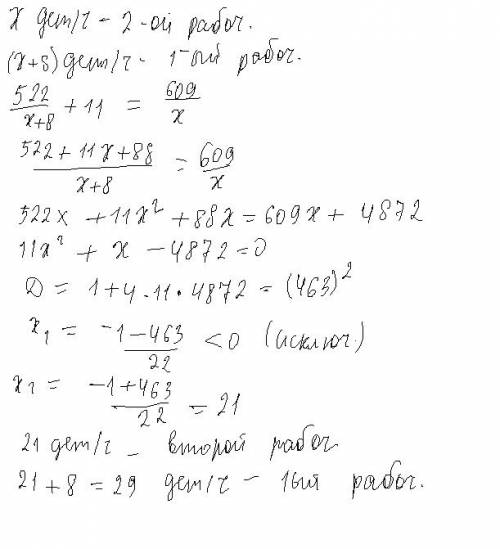 x дет/ч - 2-ой рабоч.
(x+8) дет/ч - 1-ый рабоч.
522/(x+8) + 11 = 609/x
(522+11x+88)/(x+8) = 609/x
522x + 11x² + 88x = 609x + 4872
11x² + x - 4872 = 0
D = 1+4·11·4872 = (463)²
x₁ = (-1-463)/22 < 0 (исключ.)
x₂ = (-1+463)/22 = 21
21 дет/ч - второй рабоч
21+8 = 29 дет/ч - 1ый рабоч.